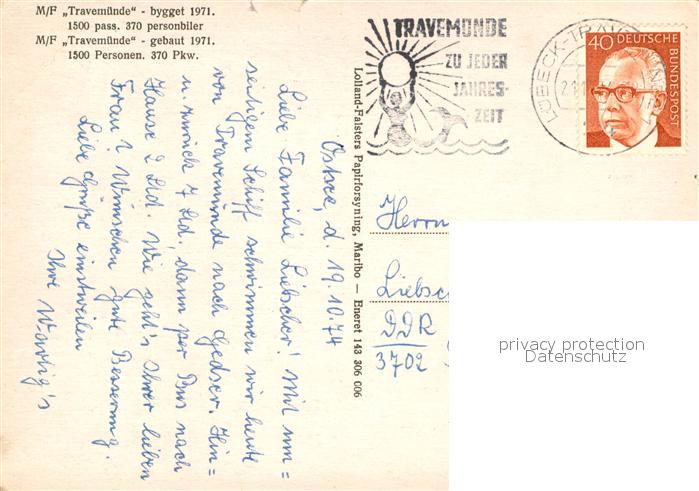 M/F „Travemünde“ - bygget 1971.
1500 pass. 370 personbiler
M/F „Travemünde“ - gebaut 1971.
1500 Personen. 370 Pkw.
TRAVEMÜNDE
ZU JEDER
JAHRES-
ZEIT
LÜBECK-TRA
40 DEUTSCHE
BUNDESPOST
Lolland-Falsters Papirforsyning, Maribo — Eneret 143 306 006
Ostsee, d. 19.10.74
Liebe Familie Liebscher! Mit um=
seitigem Schiff schwimmen wir heute
von Travemünde nach Gedser. Hin=
u. zurück 7 Std., dann per Bus nach
Hause 2 Std. Wie geht's Ihrer lieben
Frau? Wünschen gute Besserung.
Liebe Grüße einstweilen
Ihre
Herrn
Liebsc
DDR
3702
privacy protection
Datenschutz